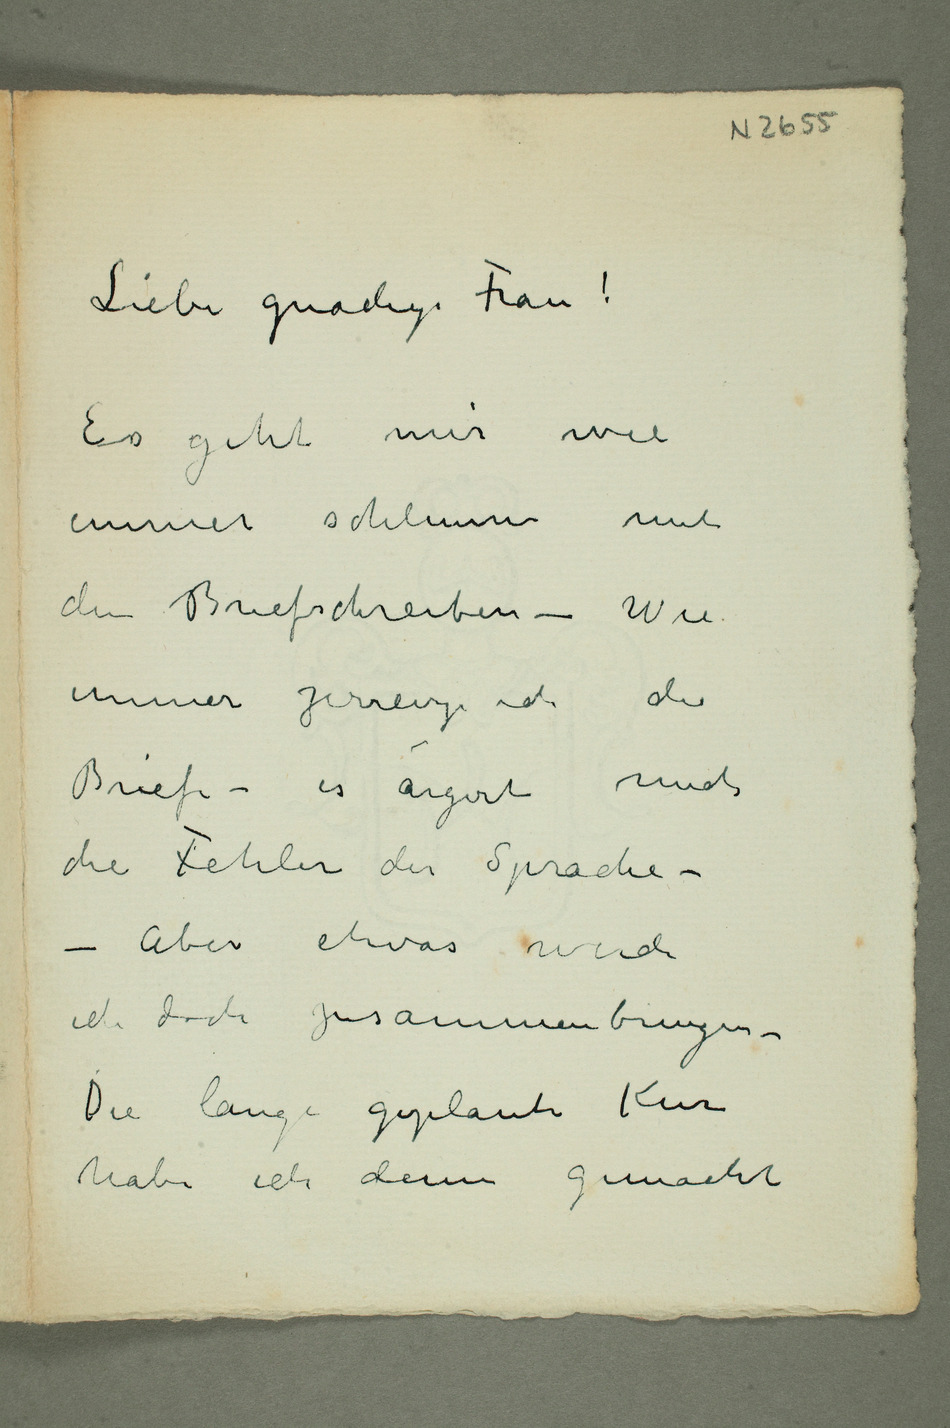 N 2655
Liebe gnädige Frau!
Es geht mir wie
immer schlimm mit
den Briefschreiben – Wie
immer zerreisze ich die
Briefe – es ärgert mich
die Fehler der Sprache –
– Aber etwas werde
ich doch zusammenbringen –
Die lange geplante Kur
habe ich denn gemacht